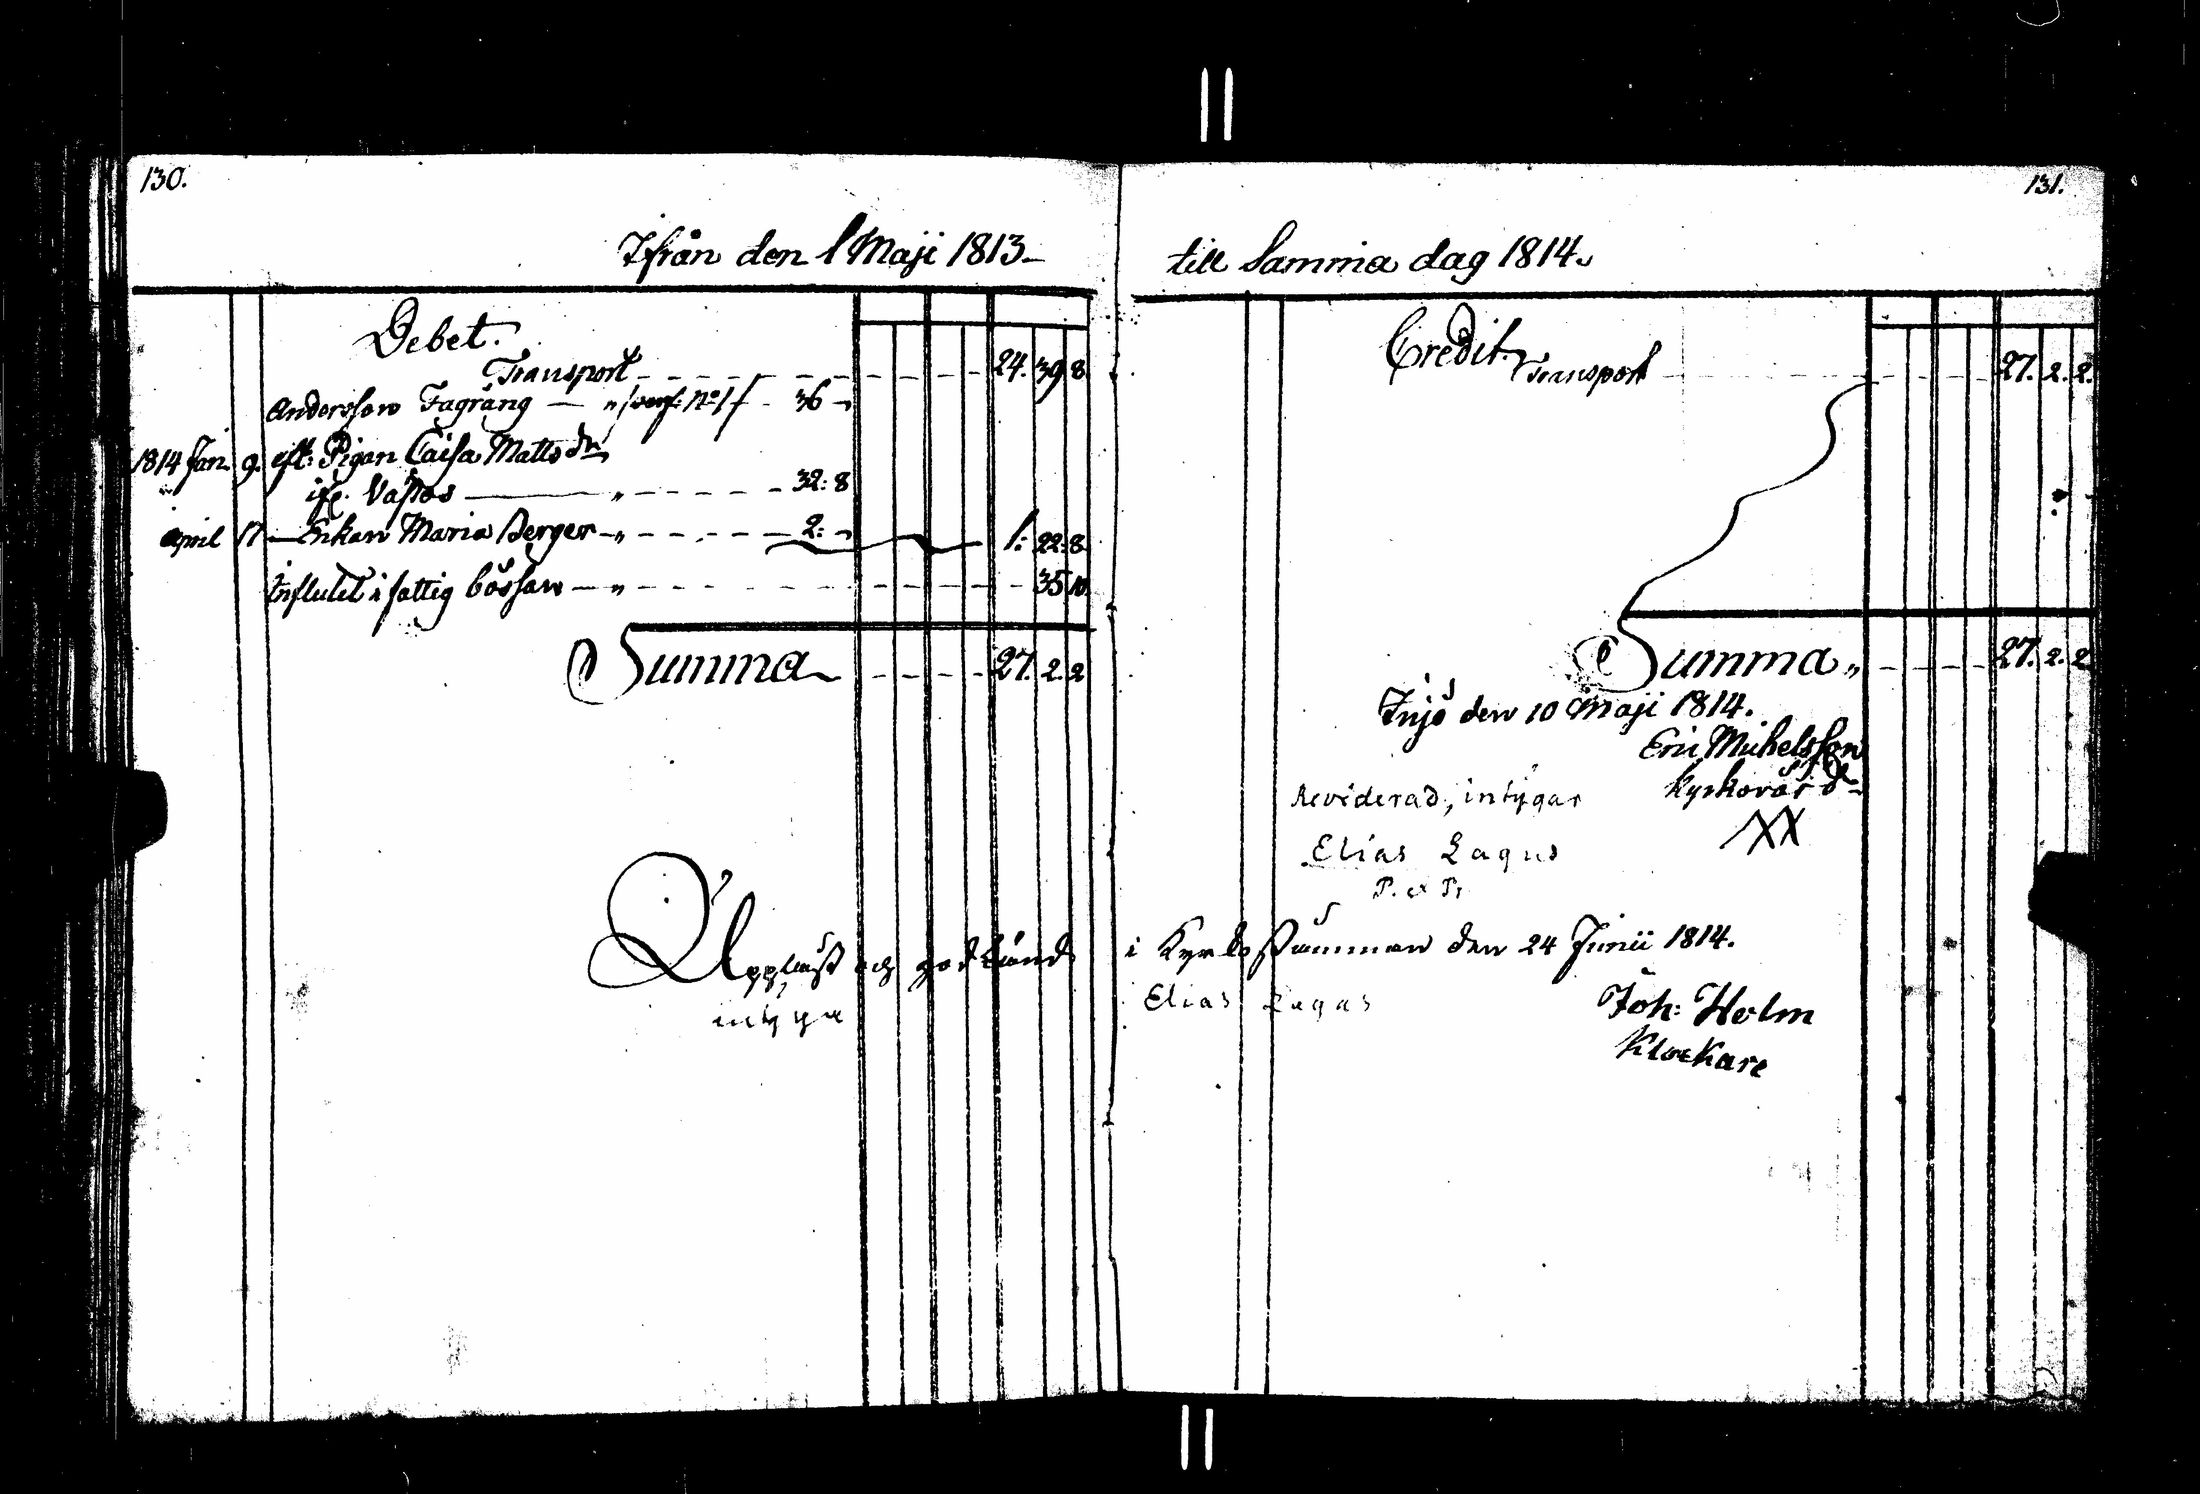 130.
Ifrån den 1 Maji 1813
Debet.
Transport 24. 39 8.
Andersson Fagräng — " /verf: No 1/ 36 "
1814 Jan. 9. eft: Pigan Caisa Matts dr
ifr. Vassos " 32: 8
April 17 — Enkan Maria Berger " 2: " 1: 22: 8.
Influtet i fattig bössan — " 35 10.
Summa 27. 2. 2
Uppläst och godkänd
intyga
131.
till Samma dag 1814.
Credit.
Transport 27. 2. 2.
Summa " 27. 2. 2
Injö den 10 Maji 1814.
Eric Michelsson
Kyrkovärd
XX
Reviderad, intygar
Elias Lagus
P. et Pr
i Kyrkostämman den 24 Junii 1814.
Elias Lagus
Joh: Holm
Klockare